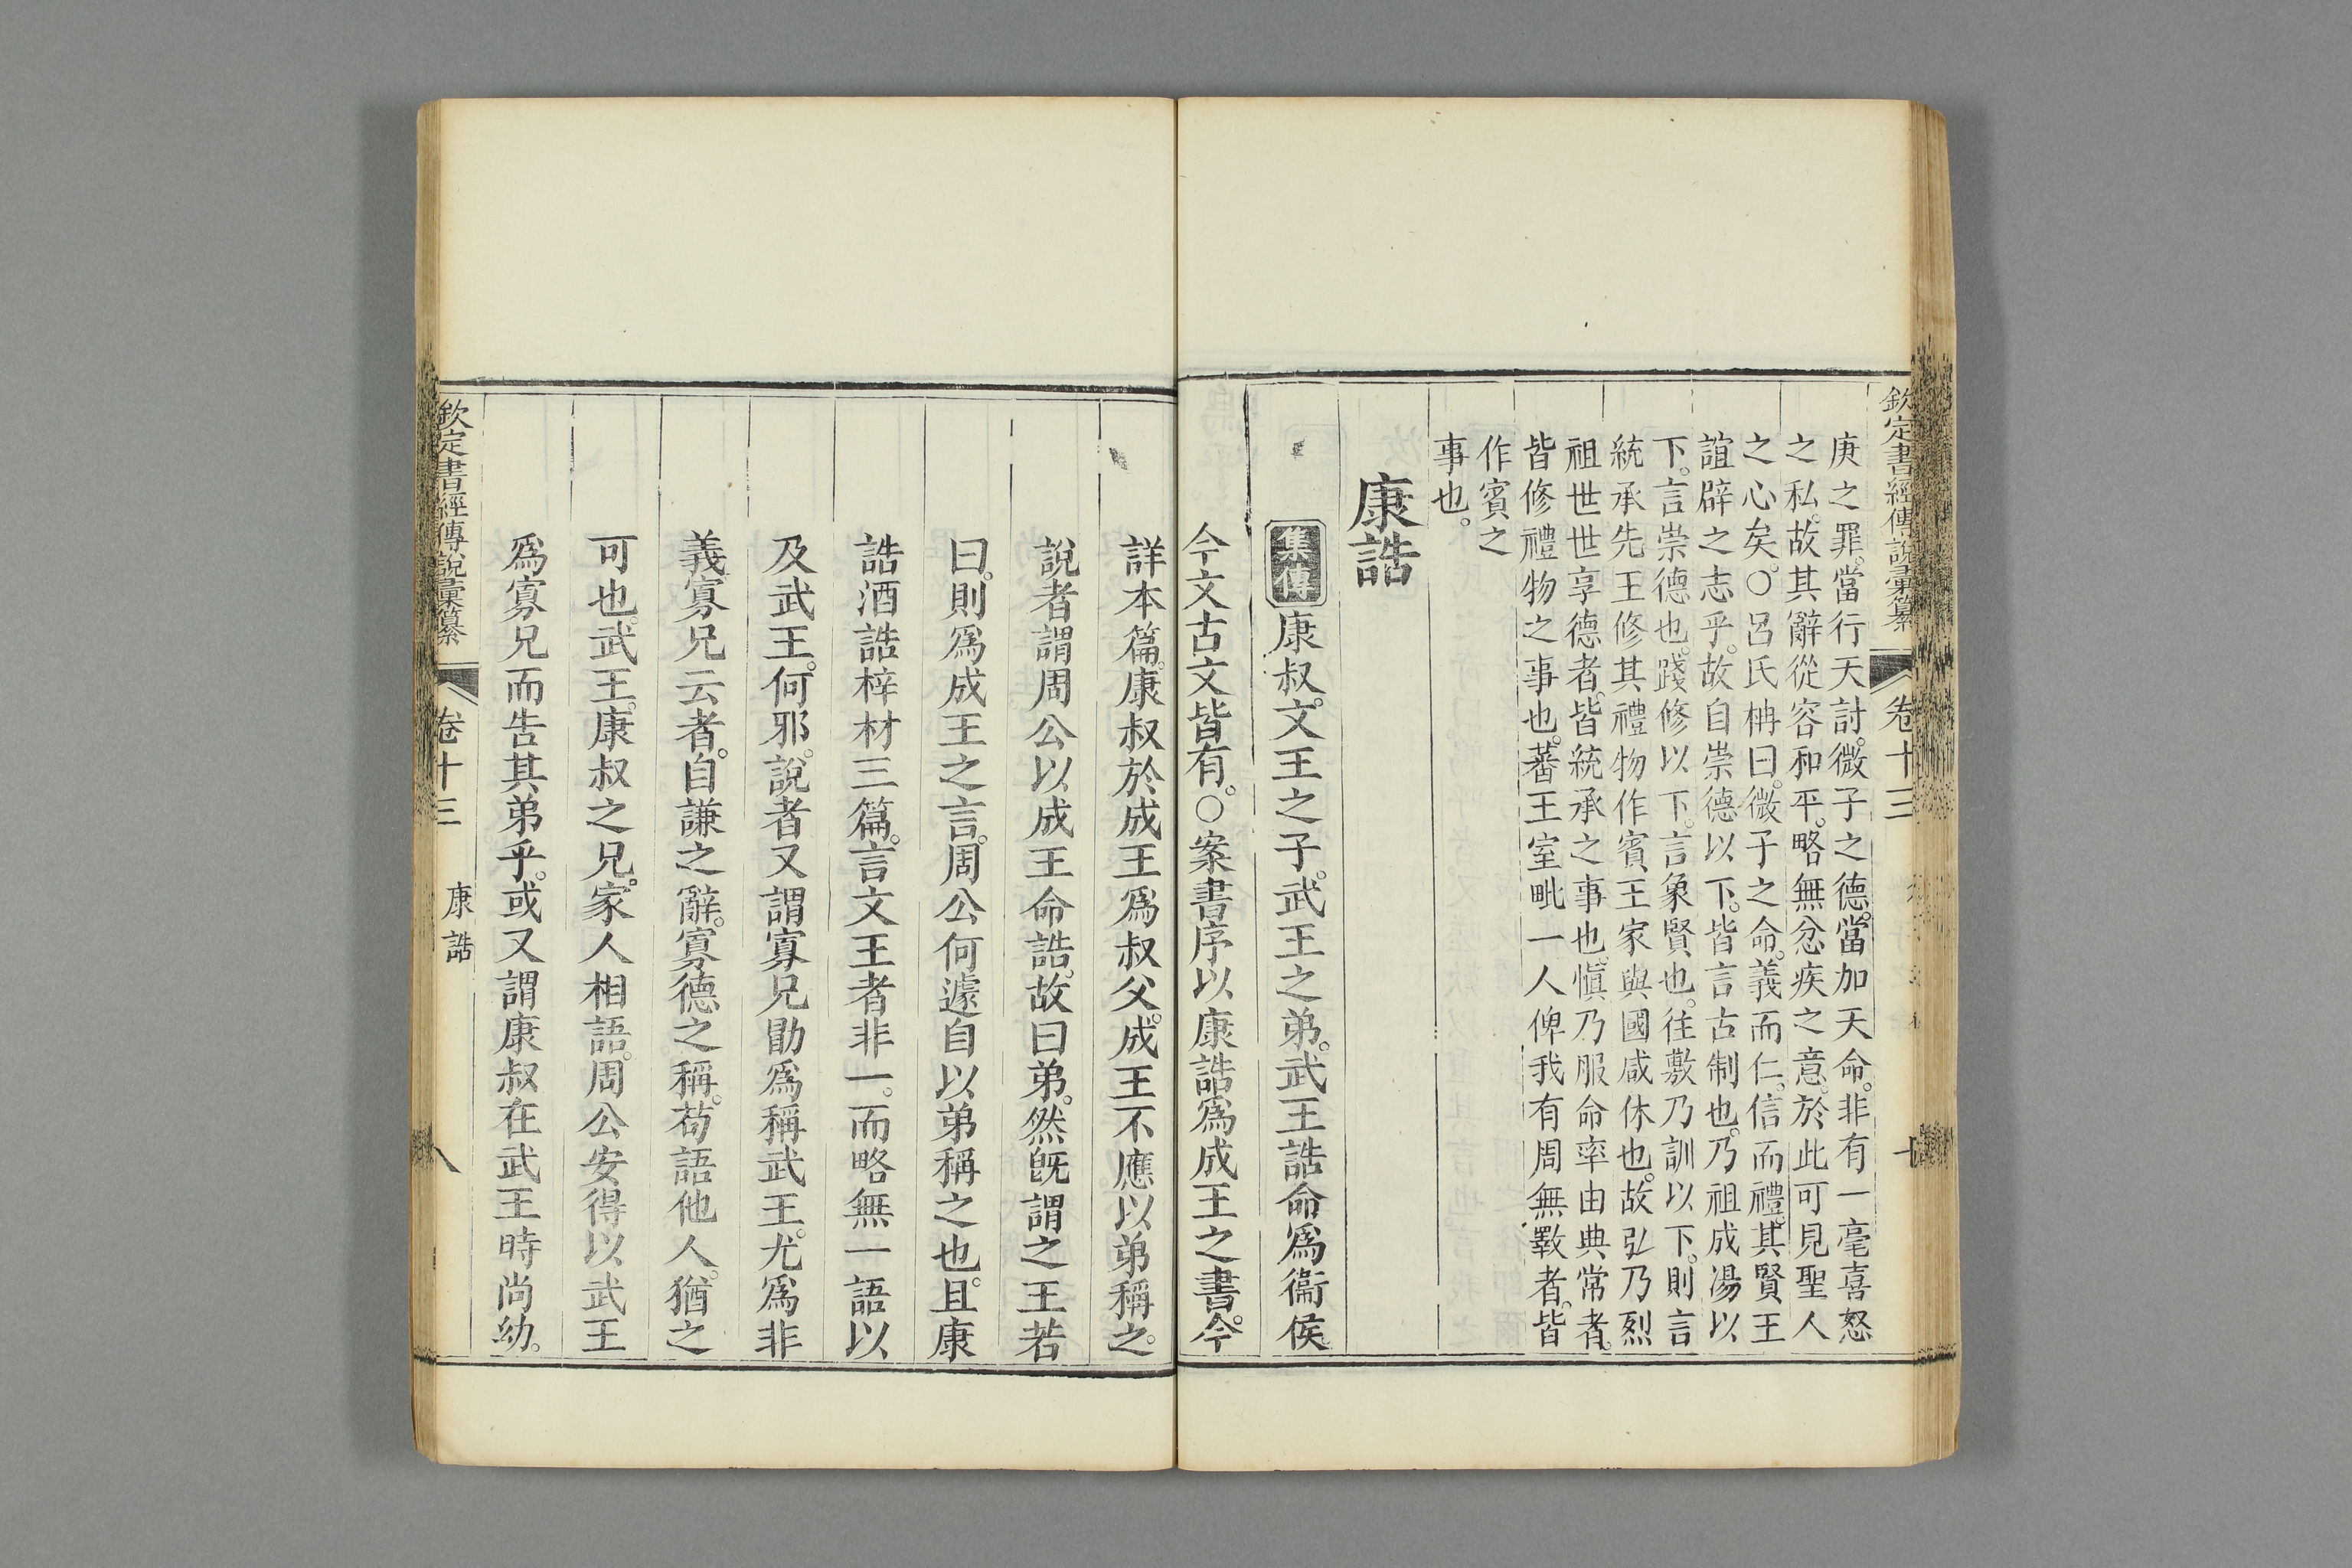 欽定書經傳說彙纂 卷十三
庚之罪。當行天討。微子之德。當加天命。非有一毫喜怒
之私。故其辭從容和平。略無忿疾之意。於此可見聖人
之心矣。○呂氏柟曰。微子之命。義而仁。信而禮。其賢王
誼辟之志乎。故自崇德以下。皆言古制也。乃祖成湯以
下。言崇德也。踐修以下。言象賢也。往敷乃訓以下。則言
統承先王修其禮物作賓王家與國咸休也。故弘乃烈
祖世世享德者。皆統承之事也。愼乃服命率由典常者。
皆修禮物之事也。蕃王室毗一人俾我有周無斁者。皆
作賓之
事也。
康誥
集傳 康叔。文王之子。武王之弟。武王誥命爲衞侯。
今文古文皆有。○案書序以康誥爲成王之書。今
詳本篇。康叔於成王爲叔父。成王不應以弟稱之。
說者謂周公以成王命誥。故曰弟。然旣謂之王若
曰。則爲成王之言。周公何遽自以弟稱之也。且康
誥酒誥梓材三篇。言文王者非一。而略無一語以
及武王。何邪。說者又謂寡兄勖爲稱武王。尤爲非
義。寡兄云者。自謙之辭。寡德之稱。苟語他人。猶之
可也。武王。康叔之兄。家人相語。周公安得以武王
爲寡兄而告其弟乎。或又謂康叔在武王時尚幼。
欽定書經傳說彙纂 卷十三 康誥 八